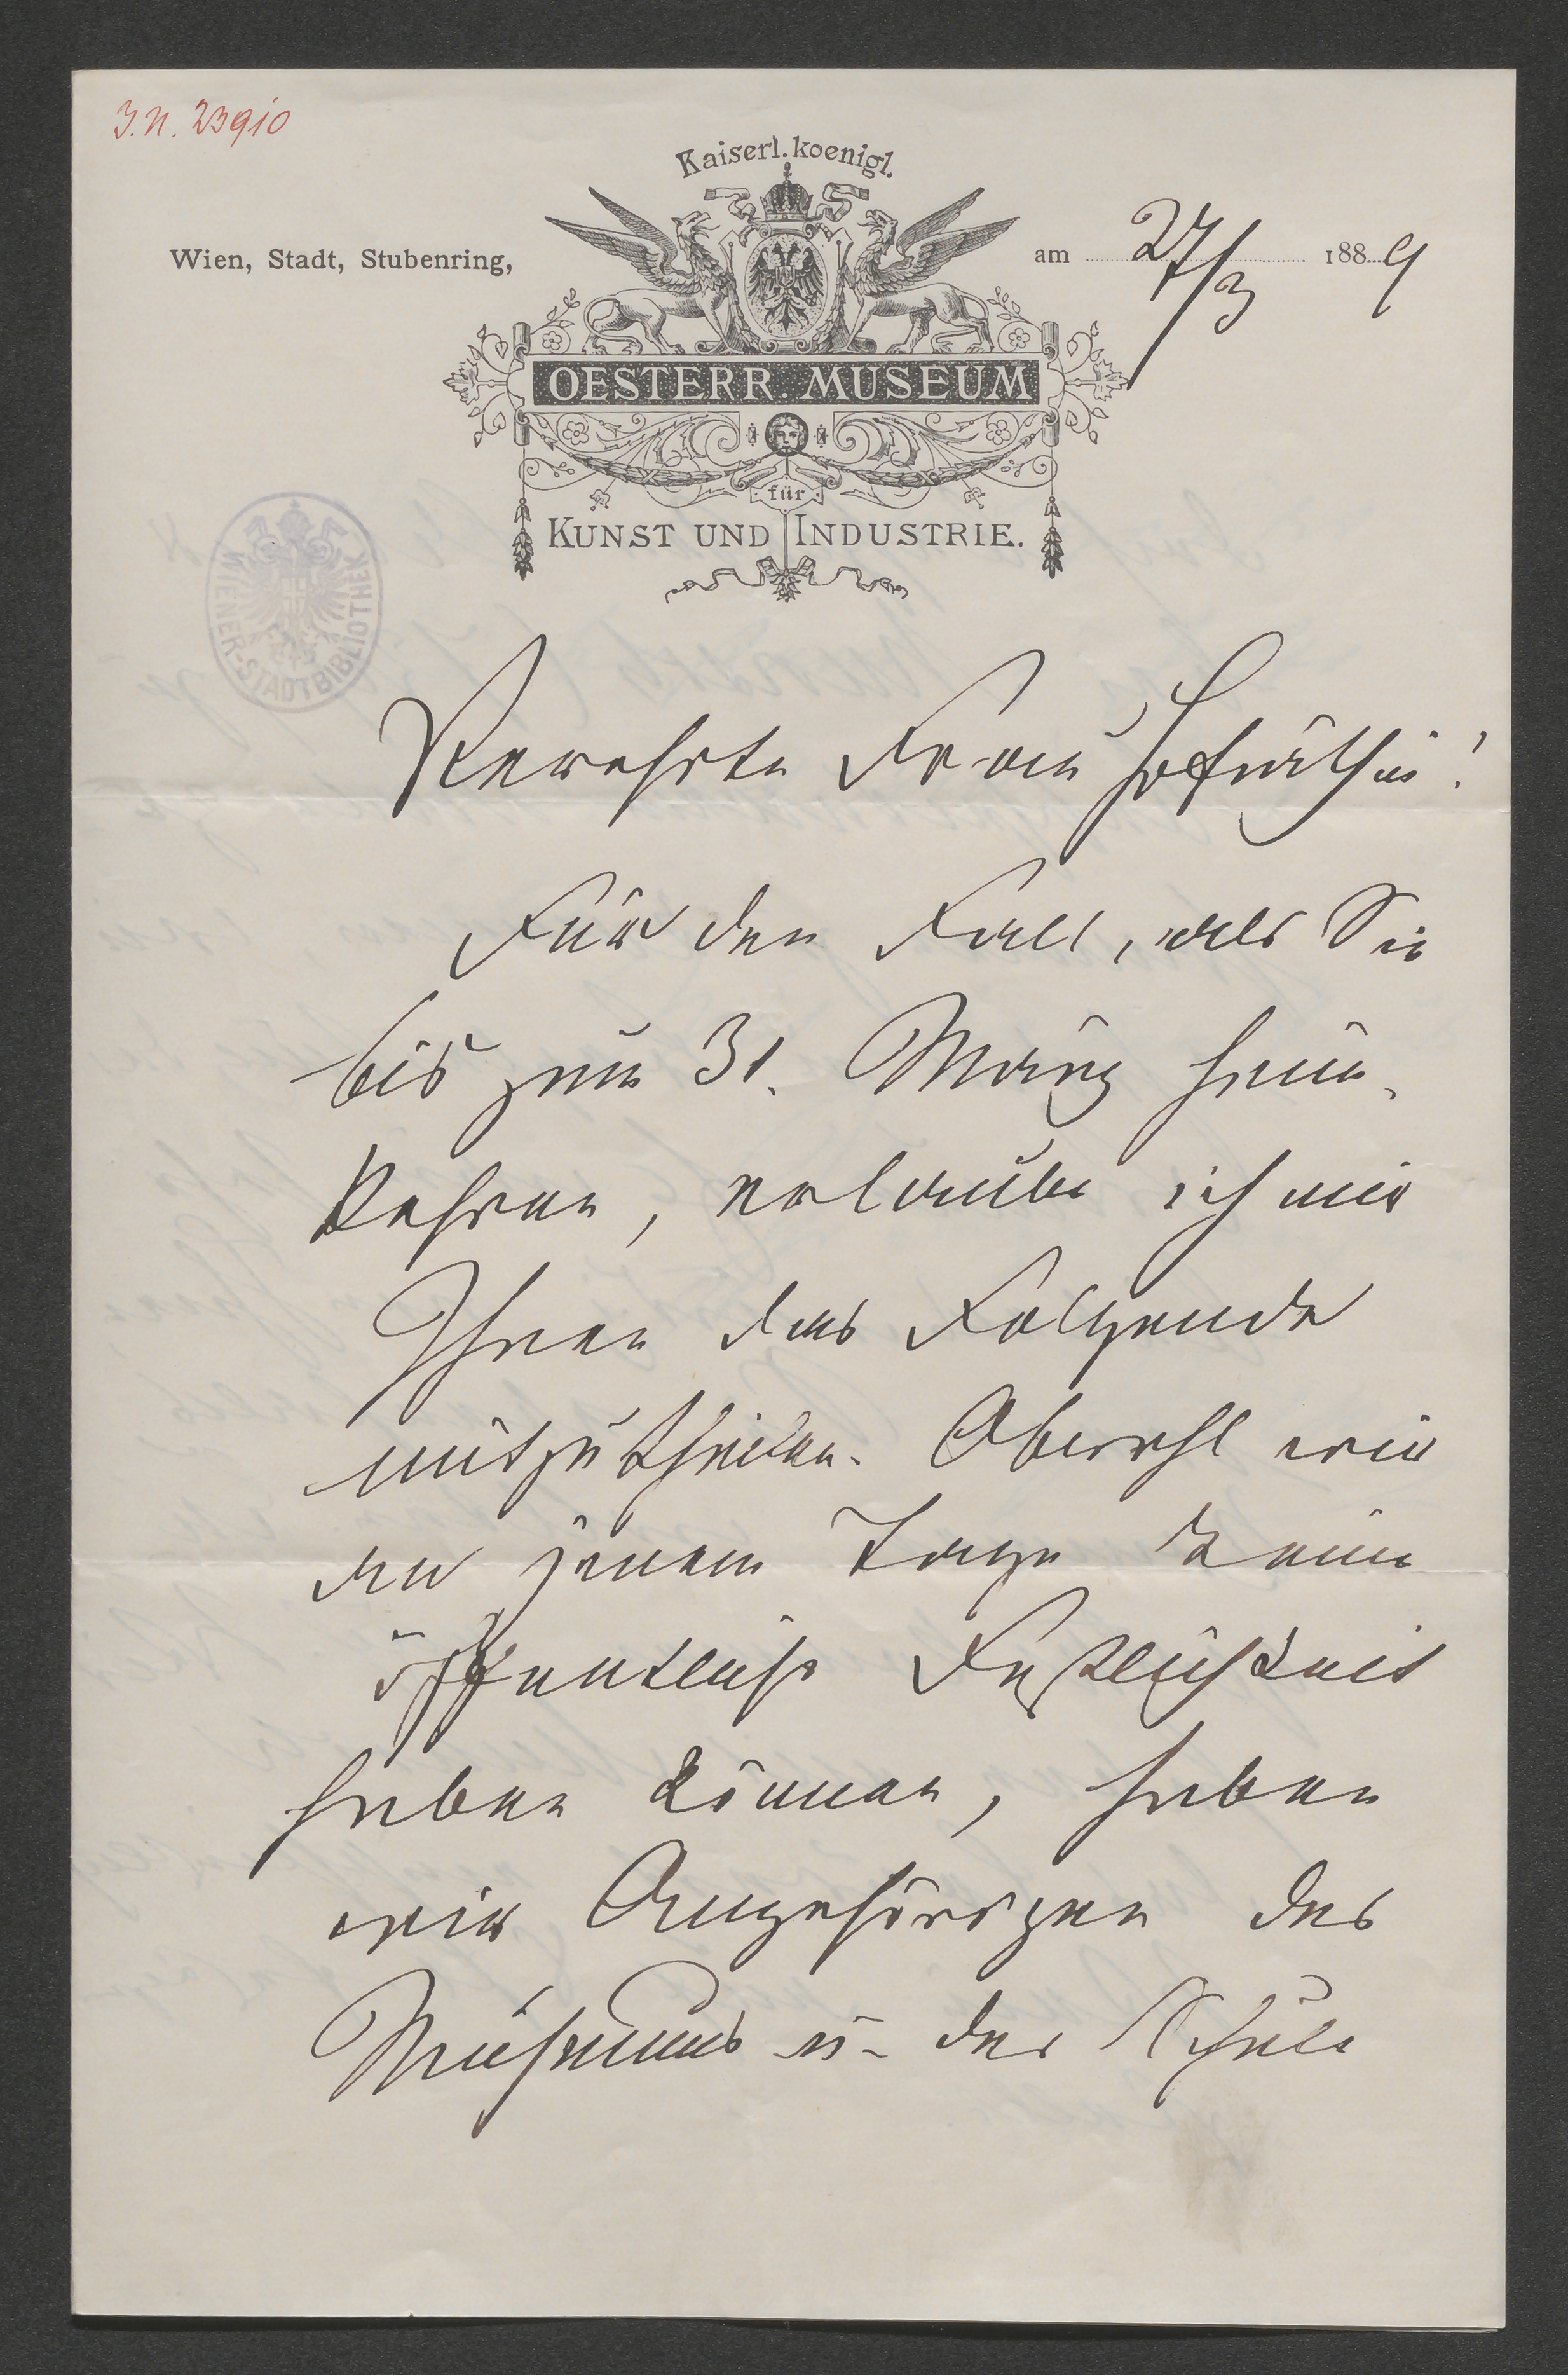 I.N. 23910
Kaiserl. koenigl.
Wien, Stadt, Stubenring,
am 27/3 1889
OESTERR. MUSEUM
für
KUNST UND INDUSTRIE.
WIENER-STADTBIBLIOTHEK
Verehrte Frau Hofräthin!
Für den Fall, als Sie
bis zum 31. März heim-
kehren, erlaube ich mir
Ihnen das Folgende
mitzutheilen. Obwohl wir
an jenem Tage keine
öffentliche Festlichkeit
haben können, haben
wir Angehörigen des
Museums u. der Schule